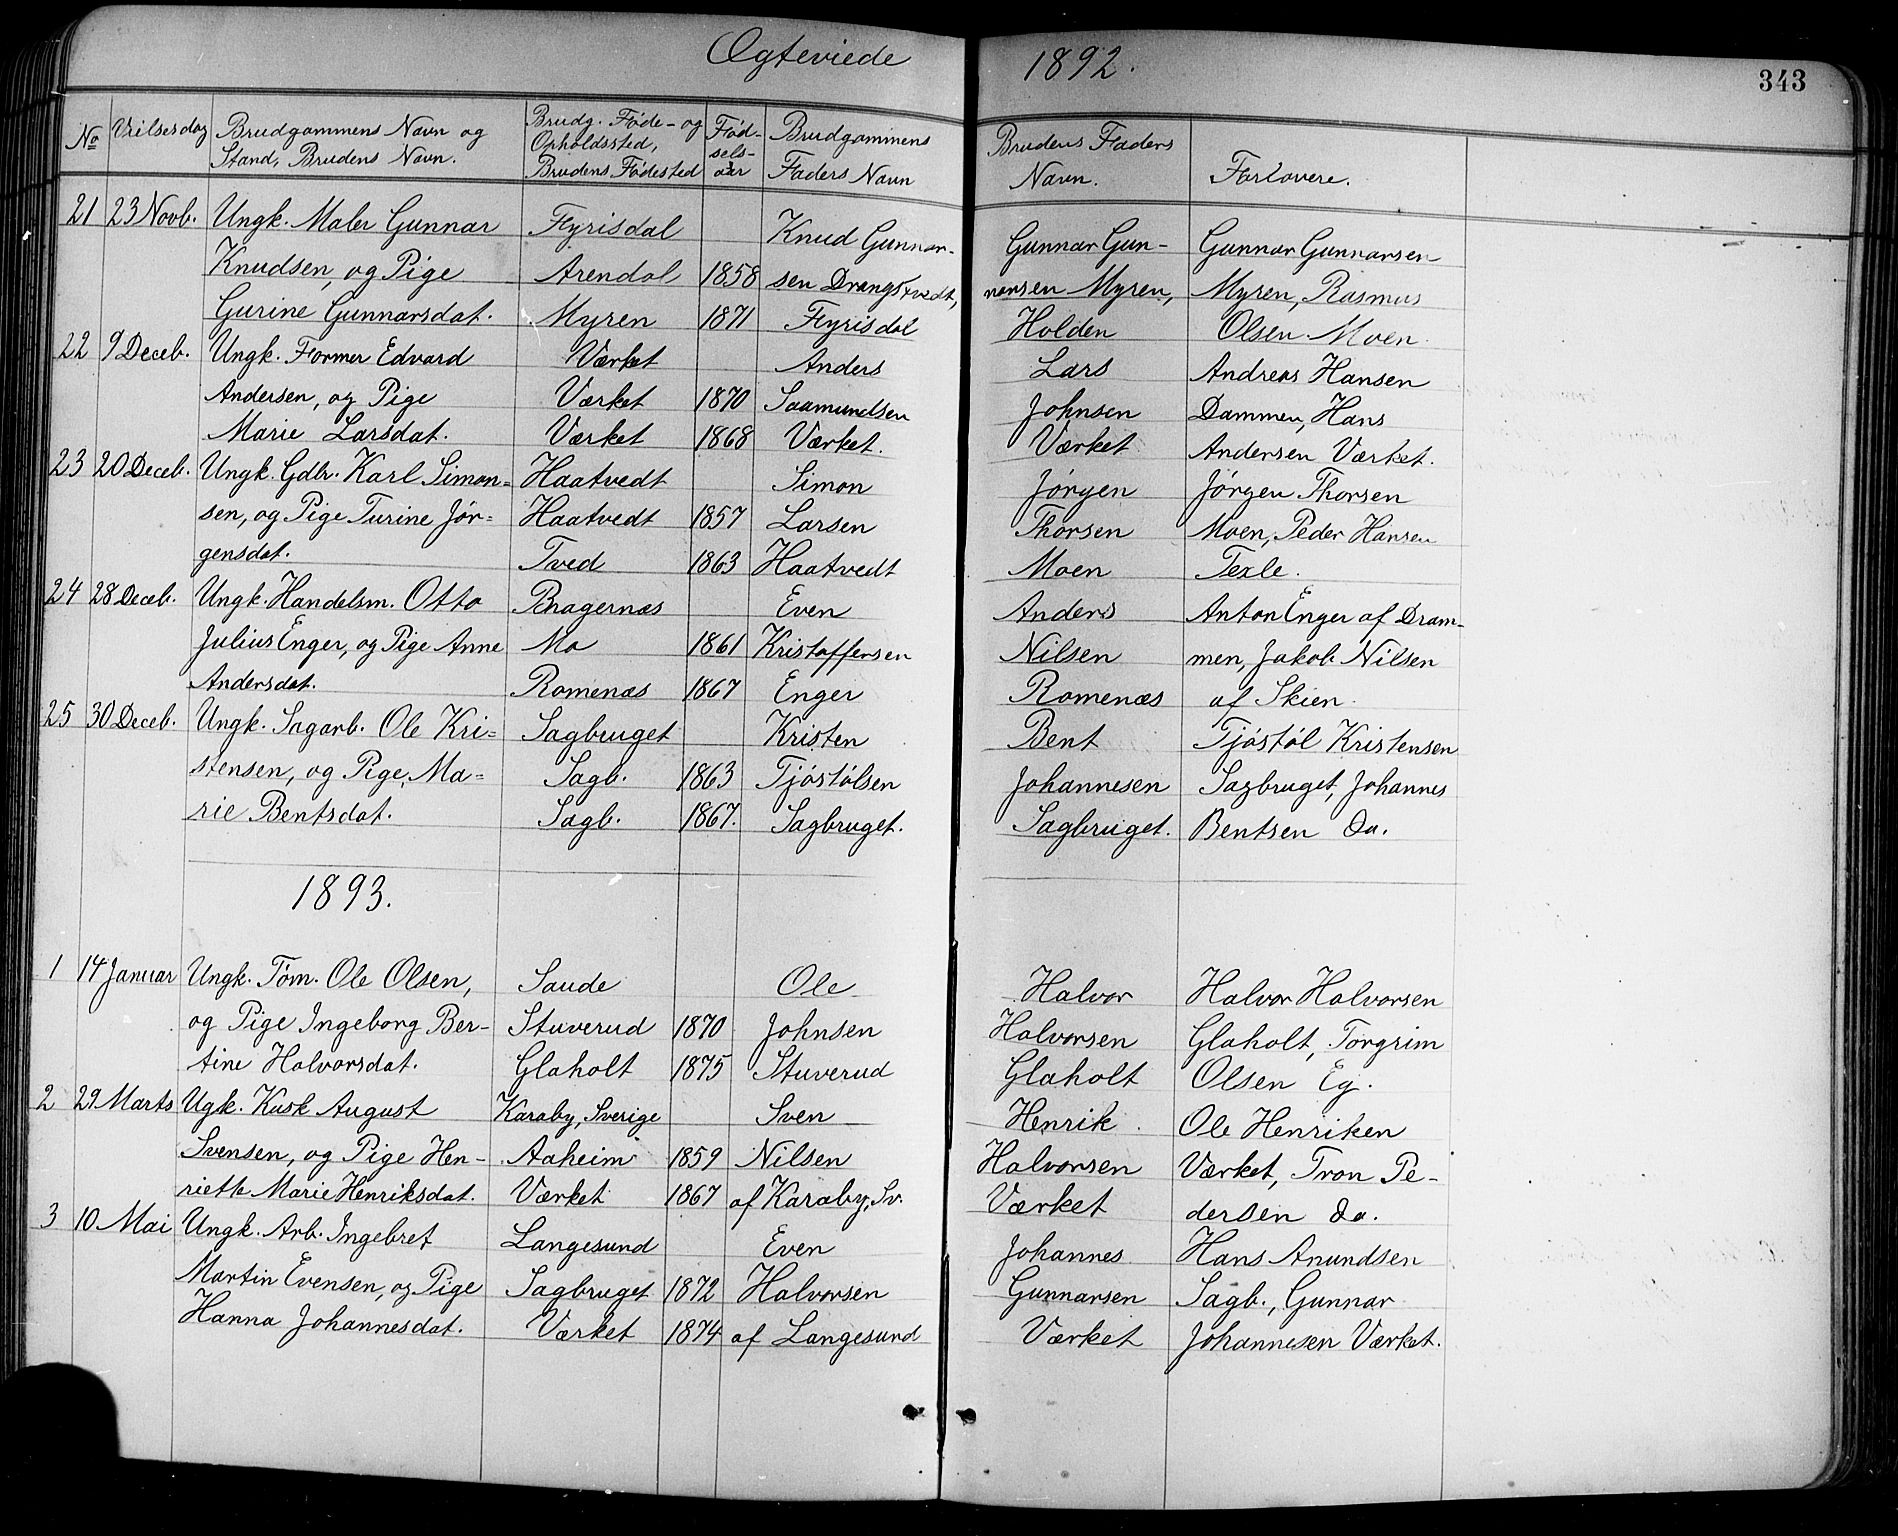 Ægteviede 1892.
343
No Vielsesdag Brudgommens Navn og Stand, Brudens Navn. Brudg. Føde- og Opholdssted, Brudens Fødested Fødselsaar Brudgommens Faders Navn Brudens Faders Navn. Forlovere.
21 23 Novb. Ungk. Maler Gunnar Fyrisdal Knud Gunnar- Gunnar Gun- Gunnar Gunnarsen
Knudsen, og Pige Arendal 1858 sen Drangstvedt, narsen Myren, Myren, Rasmus
Gurine Gunnarsdat. Myren 1871 Fyrisdal Holden Olsen Moen.
22 9 Deceb. Ungk. Former Edvard Værket Anders Lars Andreas Hansen
Andersen, og Pige Værket 1870 Saamundsen Johnsen Dammen, Hans
Marie Larsdat. Værket 1868 Værket. Værket Andersen Værket.
23 20 Deceb. Ungk. Gdbr. Karl Simon= Haatvedt Simon Jørgen Jørgen Thorsen
sen, og Pige Turine Jør= Haatvedt 1857 Larsen Thorsen Moen, Peder Hansen
gensdat. Tved 1863 Haatvedt Moen Texle.
24 28 Deceb. Ungk. Handelsm. Otto Bragernæs Even Anders Anton Enger af Dram-
Julius Enger, og Pige Anne Mo 1861 Kristoffersen Nilsen men, Jakob Nilsen
Andersdat. Romenæs 1867 Enger Romenæs af Skien.
25 30 Deceb. Ungk. Sagarb. Ole Kri= Sagbruget Kristen Bent Tjøstøl Kristensen
stensen, og Pige, Ma= Sagb. 1863 Tjøstølsen Johannesen Sagbruget, Johannes
rie Bentsdat. Sagb. 1867. Sagbruget. Sagbruget. Bentsen do.
1893.
1 14 Januar Ungk. Tøm. Ole Olsen, Saude Ole Halvor Halvor Halvorsen
og Pige Ingeborg Ber- Stuverud 1870 Johnsen Halvorsen Glaholt, Torgrim
tine Halvorsdat. Glaholt 1875 Stuverud Glaholt Olsen Eg.
2 29 Marts Ugk. Kusk August Karaby, Sverige Sven Henrik Ole Henriken
Svensen, og Pige Hen- Aaheim 1859 Nilsen Halvorsen Værket, Tron Pe-
riette Marie Henriksdat. Værket 1867 af Karaby, Sv. Værket dersen do.
3 10 Mai Ungk. Arb. Ingebret Langesund Even Johannes Hans Anundsen
Martin Evensen, og Pige Sagbruget 1872 Halvorsen Gunnarsen Sagb., Gunnar
Hanna Johannesdat. Værket 1874 af Langesund Værket Johannesen Værket.